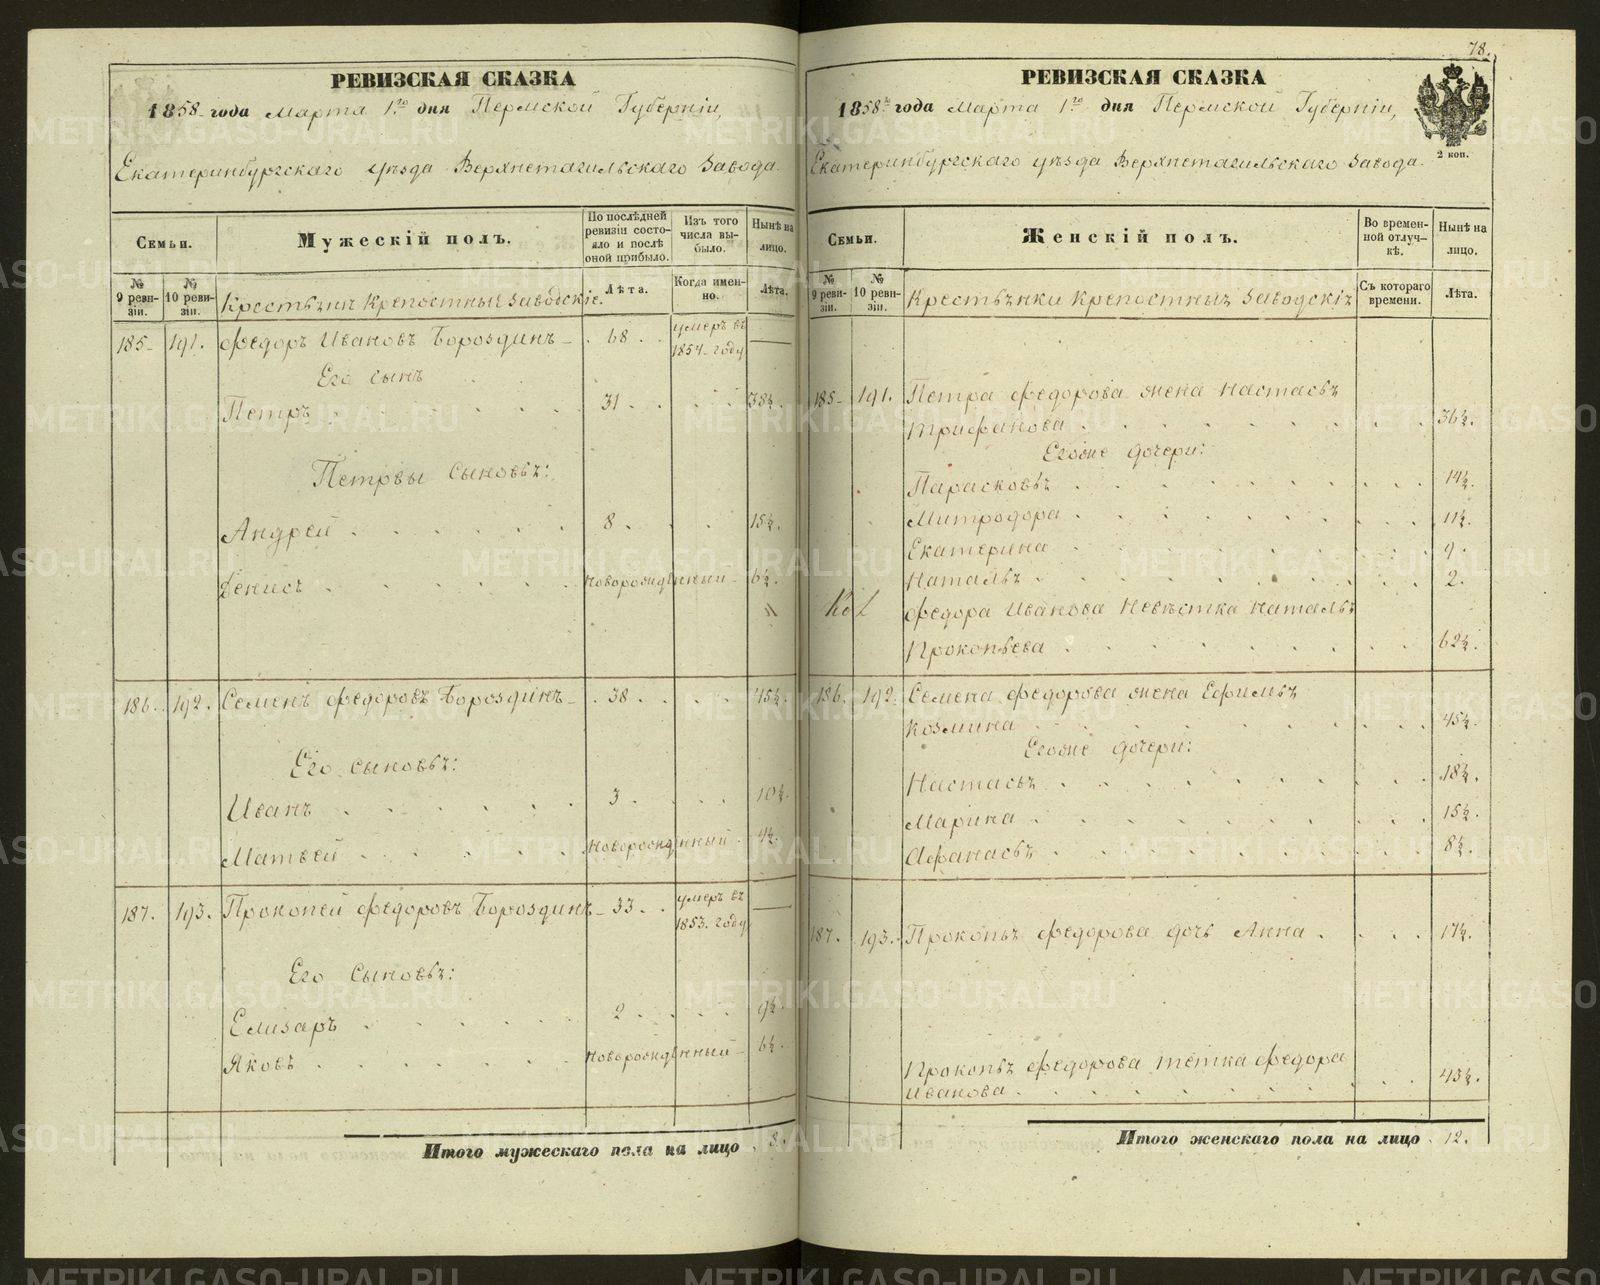 78.
РЕВИЗСКАЯ СКАЗКА
1858 года Марта 1го дня Пермской Губерніи,
Екатеринбургского уѣзда Верхнетагильского Завода.
Семьи.
Мужескій полъ.
По послѣдней ревизіи состояло и послѣ оной прибыло.
Изъ того числа выбыло.
Нынѣ на лицо.
№ 9 ревизіи.
№ 10 ревизіи.
Крестьяне Крепостные Заводскіе.
Лѣта.
Когда именно.
Лѣта.
185 191. Федоръ Ивановъ Бороздинъ 68. умеръ въ 1854 году —
Его сынъ
Петръ 31. 38½.
Петровы Сыновья:
Андрей 8. 15½.
Денисъ новорожденный 6½.
186. 192. Семенъ Федоровъ Бороздинъ 38. 45½.
Его сыновья:
Иванъ 3. 10½.
Матвей новорожденный. 4½.
187. 193. Прокопей Федоровъ Бороздинъ 33. умеръ въ 1853 году —
Его Сыновья:
Елизаръ 2. 9½.
Яковъ новорожденный 6½.
Итого мужескаго пола на лицо 8.
РЕВИЗСКАЯ СКАЗКА
1858 года Марта 1го дня Пермской Губерніи,
Екатеринбургского уѣзда Верхнетагильского Завода.
2 коп.
Семьи.
Женскій полъ.
Во временной отлучкѣ.
Нынѣ на лицо.
№ 9 ревизіи.
№ 10 ревизіи.
Крестьянки Крепостныя Заводскія
Съ котораго времени.
Лѣта.
185 191. Петра Федорова жена Настасья
Трифанова 36½.
Егоже дочери:
Парасковья 14½.
Митродора 11½.
Екатерина 9.
Наталья 2.
Федора Иванова Невѣстка Наталья
Прокопьева 62½.
186. 192. Семена Федорова жена Ефимья
Козмина 45½.
Егоже дочери:
Настасья 18½.
Марина 15½.
Афанасья 8½.
187. 193. Прокопья Федорова дочь Анна 17½.
Прокопья Федорова тётка Федора
Иванова 43½.
Итого женскаго пола на лицо 12.
METRIKI.GASO-URAL.RU